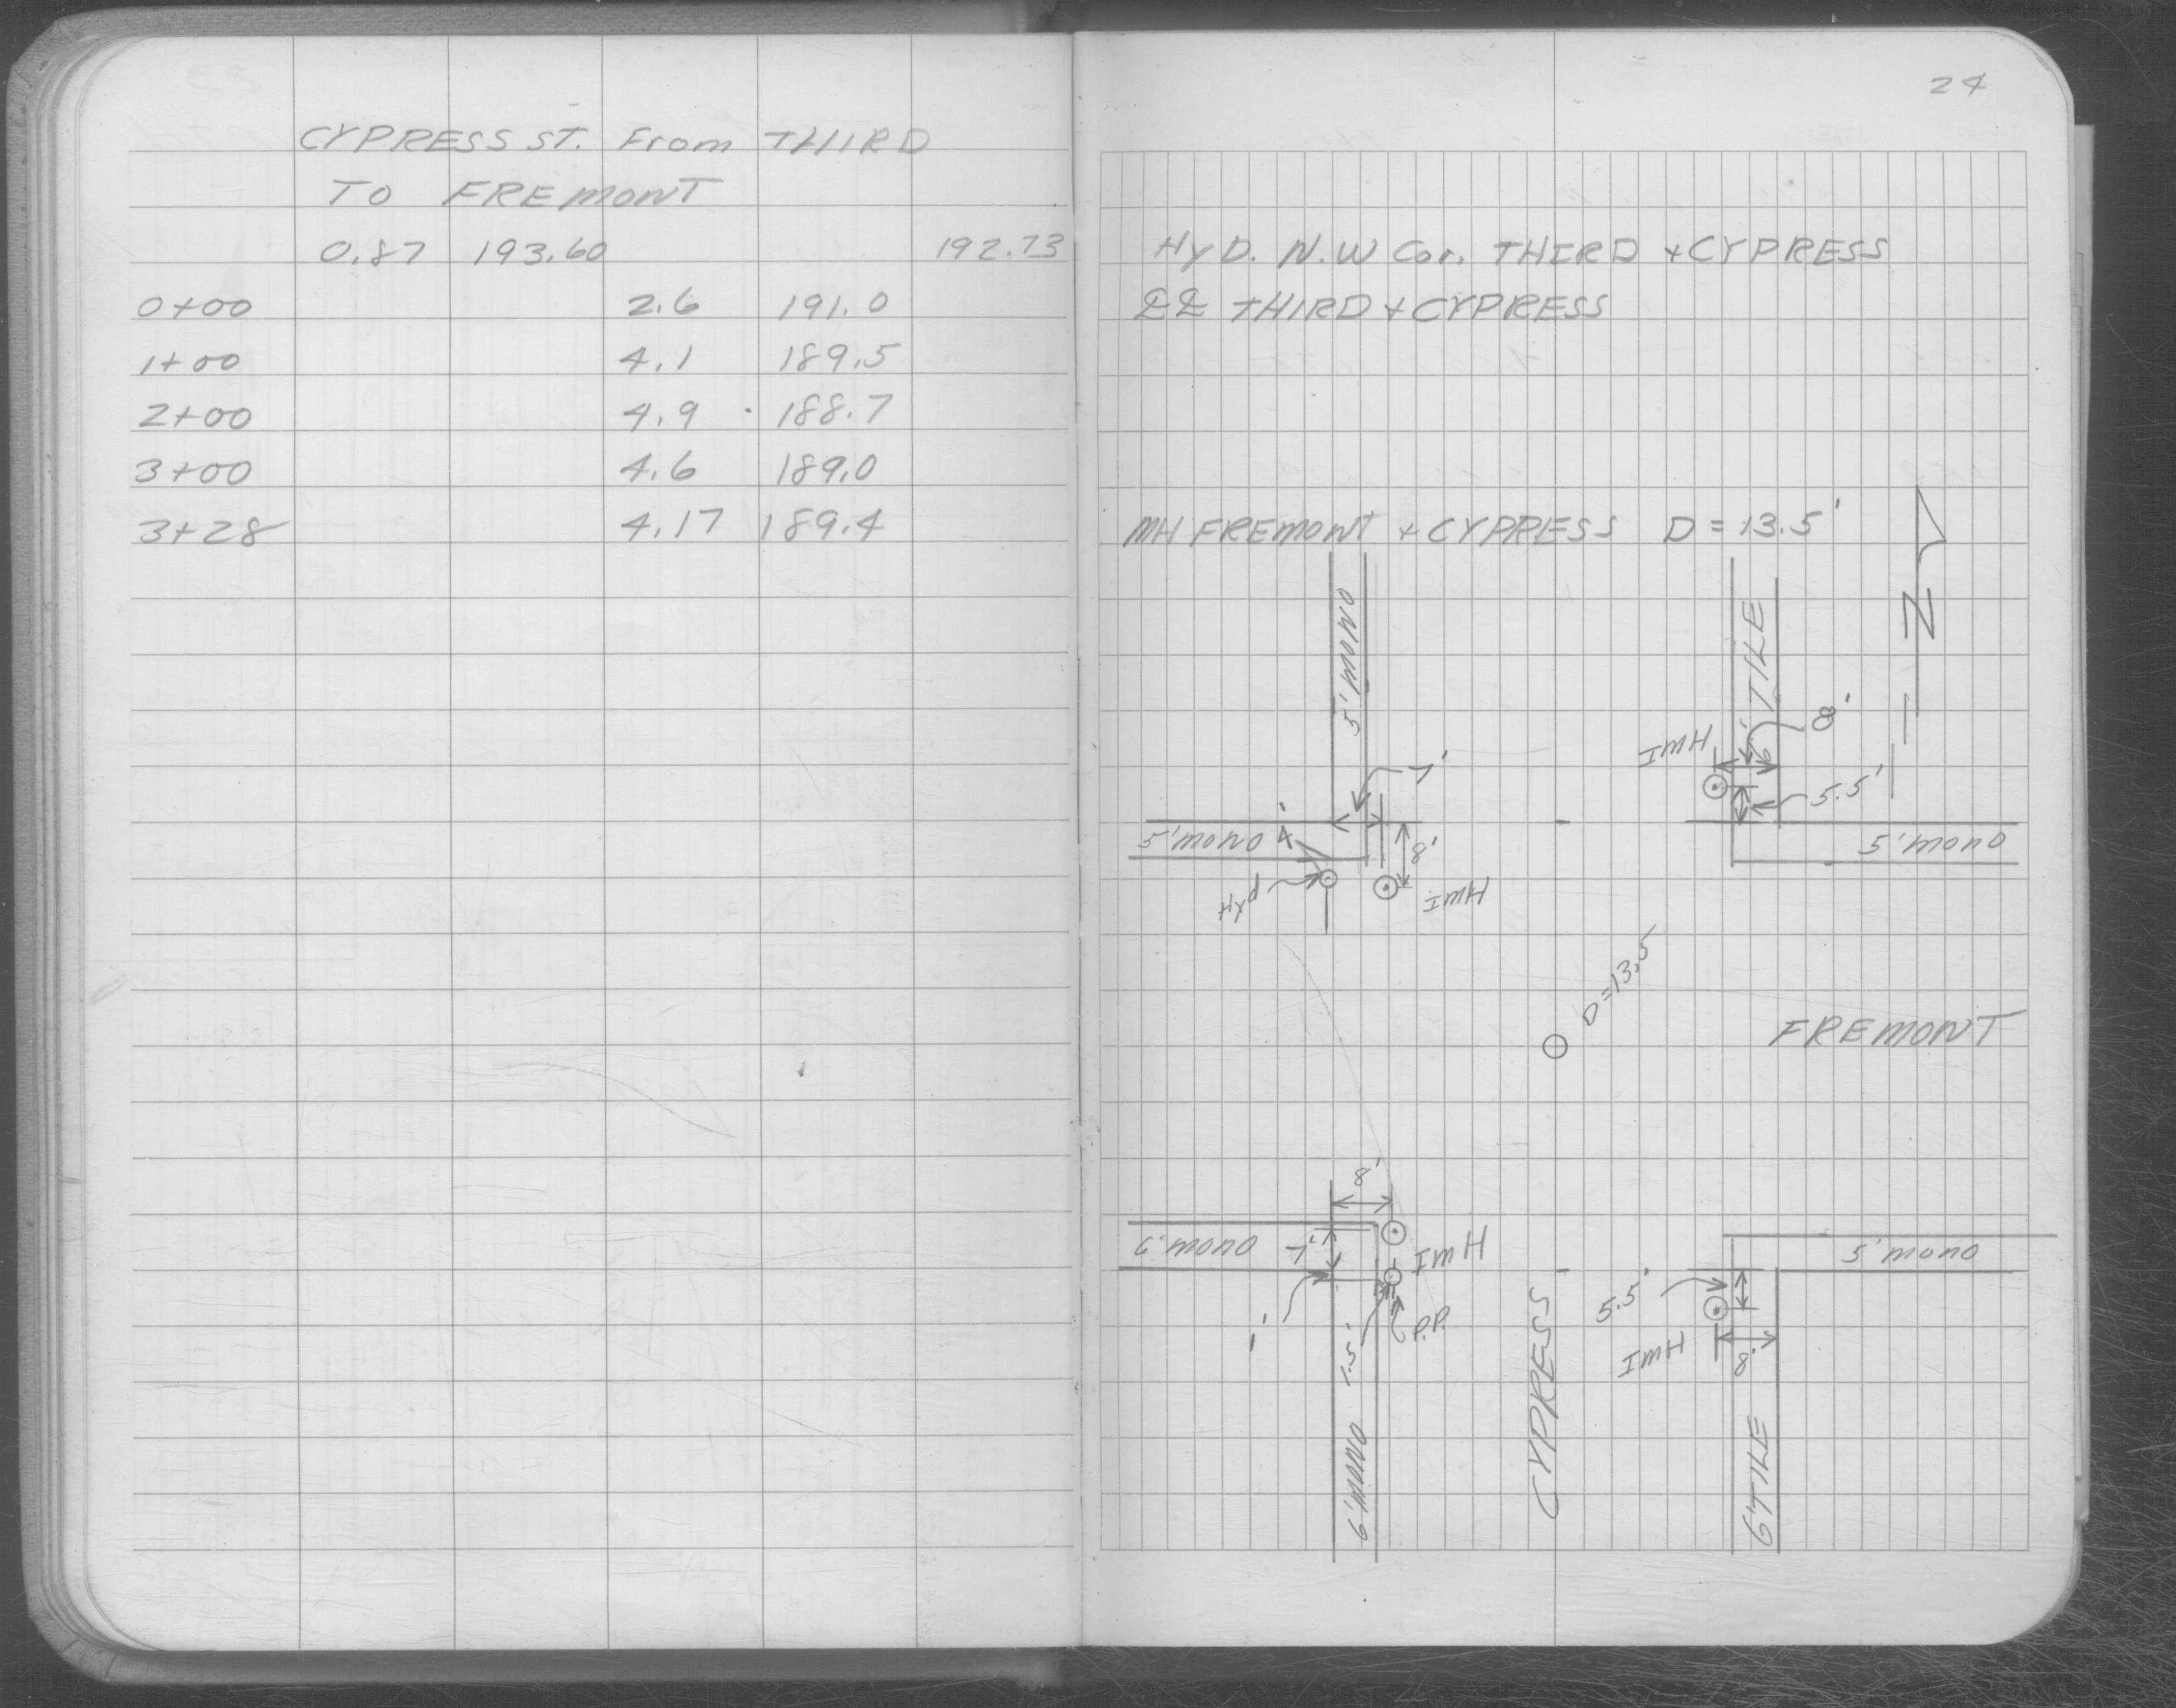 CYPRESS ST. From THIRD
TO FREMONT
0.87 193.60 192.73
0+00 2.6 191.0
1+00 4.1 189.5
2+00 4.9 188.7
3+00 4.6 189.0
3+28 4.17 189.4
24
HYD. N.W Cor. THIRD + CYPRESS
℄℄ THIRD + CYPRESS
MH FREMONT + CYPRESS D = 13.5'
N
5' MONO
6' TILE
8'
IMH
7'
5.5'
5' MONO
4'
8'
5' MONO
Hyd
IMH
D=13.5
FREMONT
8'
MONO
7'
IMH
5' MONO
1'
1.5'
P.P.
5.5'
IMH
8'
6' MONO
CYPRESS
6' TILE